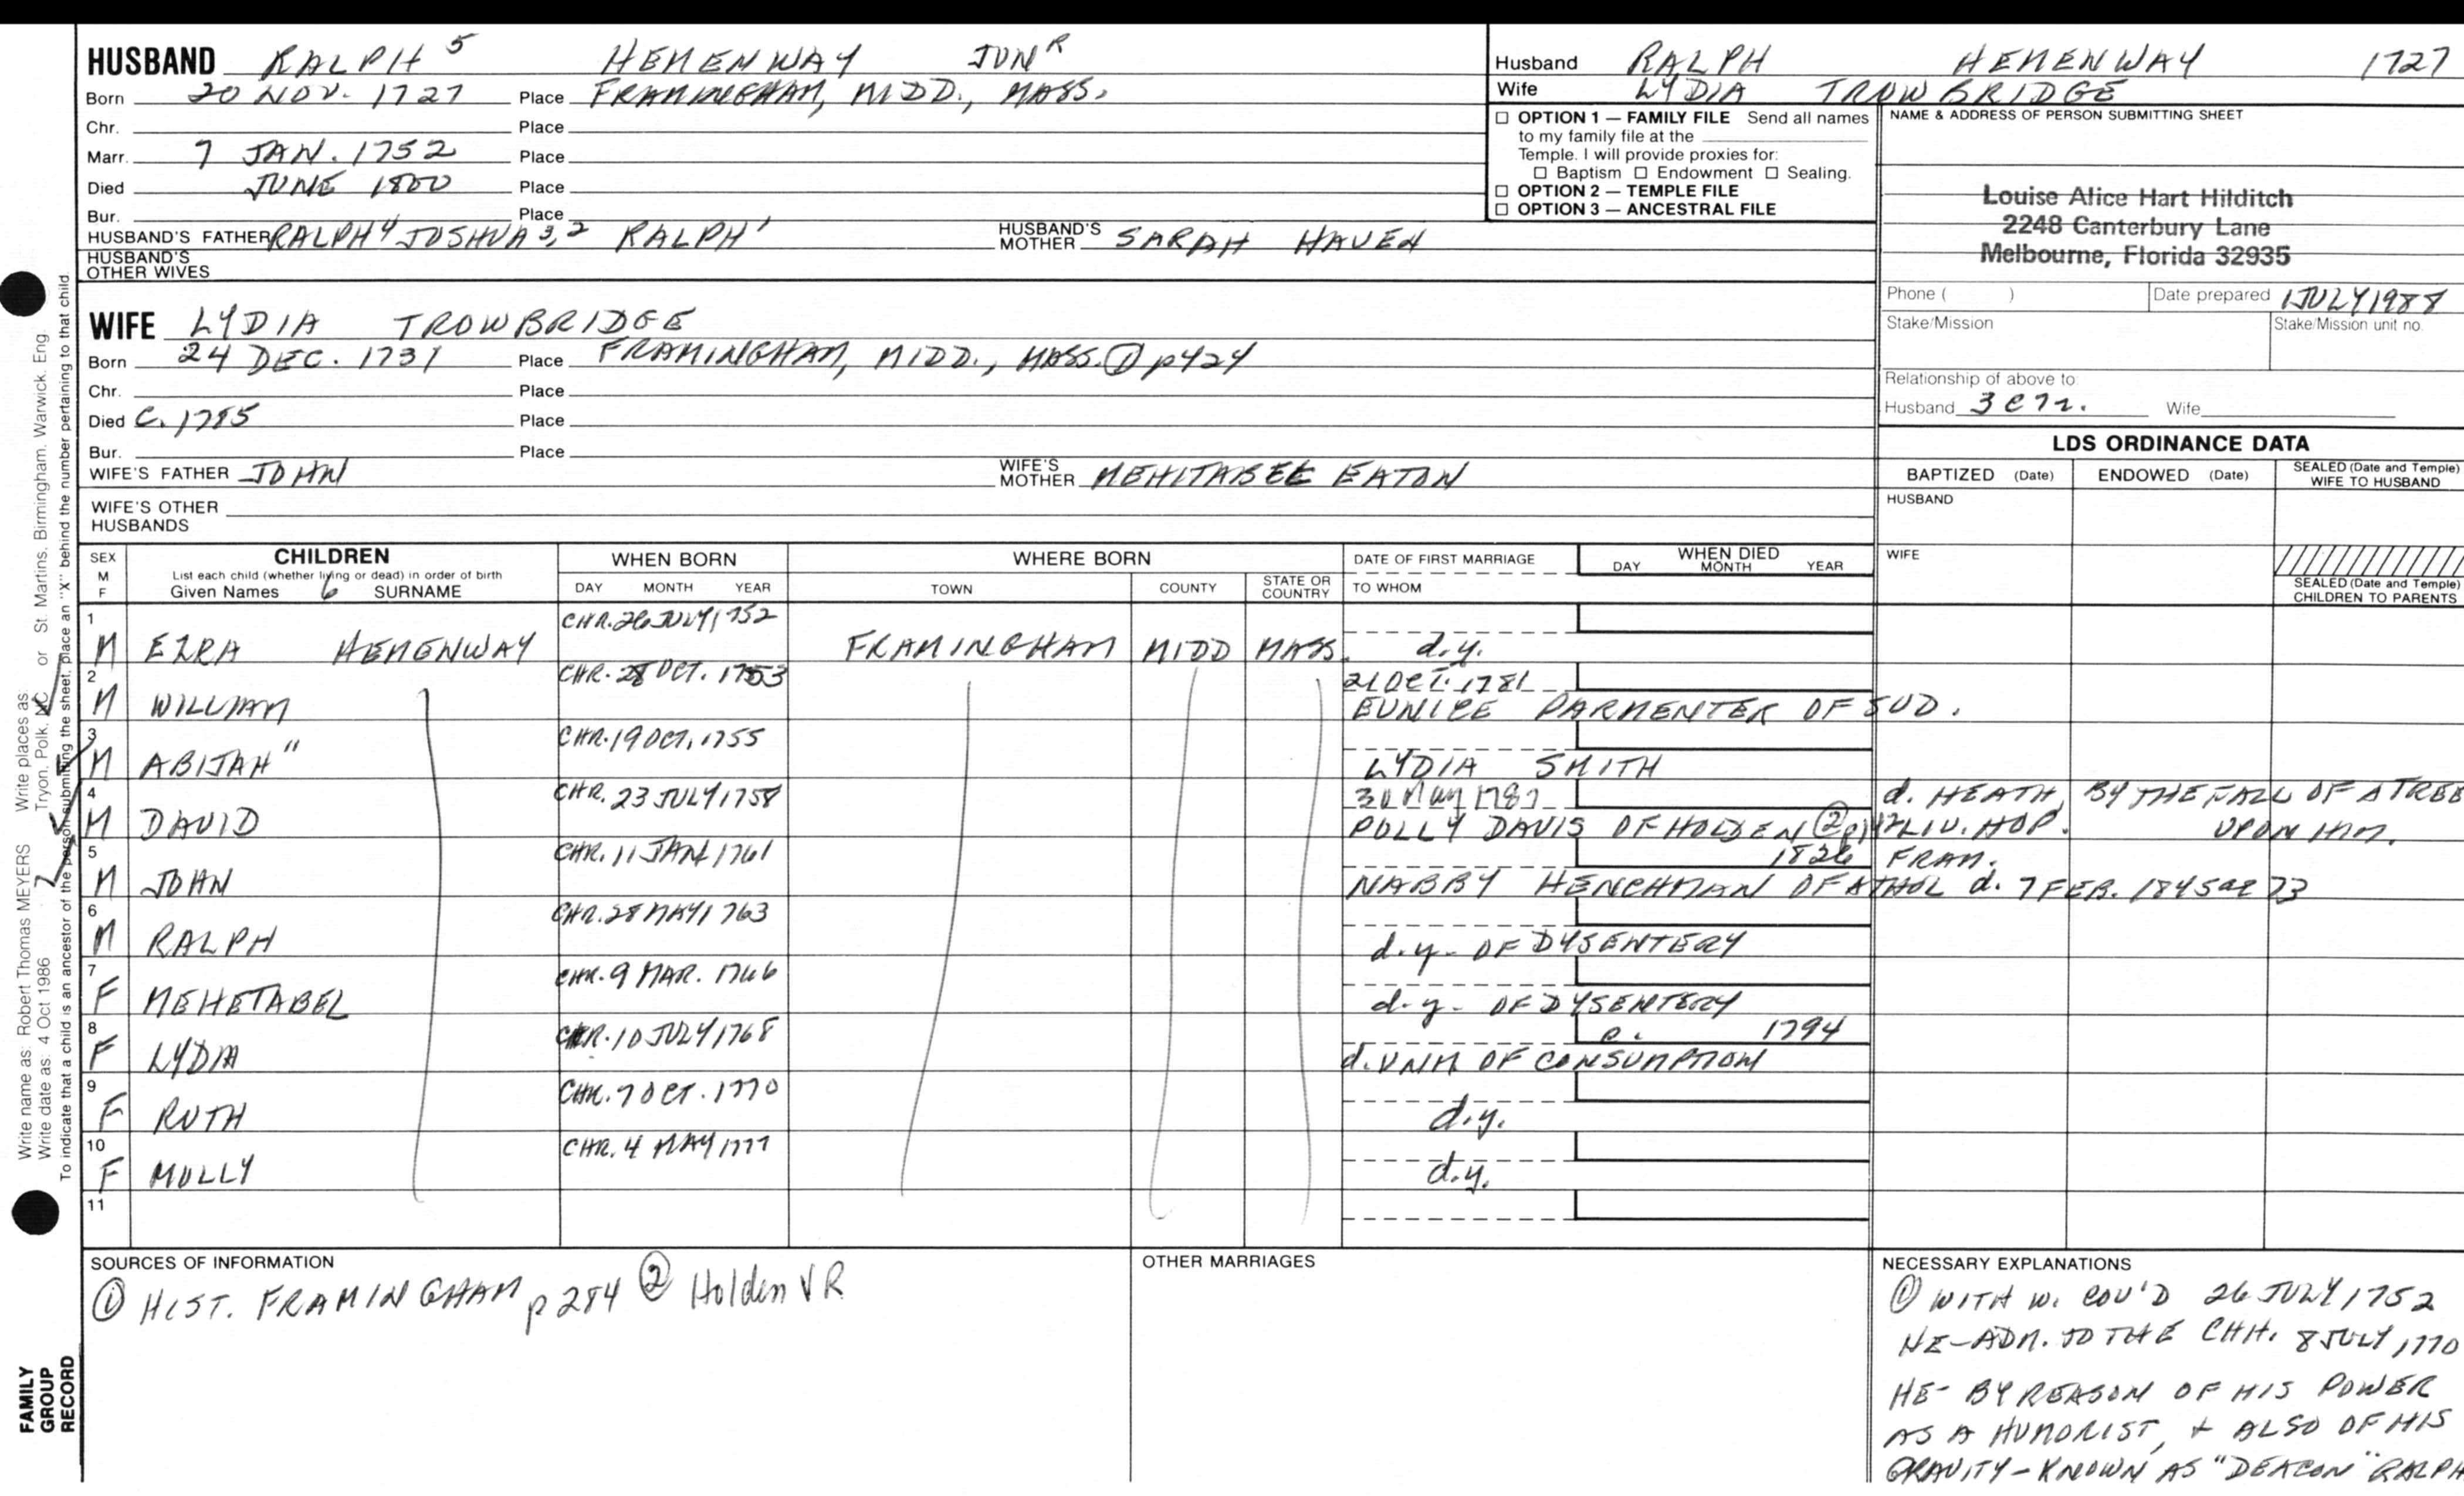 HUSBAND RALPH 5 HEMENWAY JUN R
Born 20 NOV. 1727 Place FRAMINGHAM, MIDD., MASS.
Chr. Place
Marr. 7 JAN. 1752 Place
Died JUNE 1800 Place
Bur. Place
HUSBAND'S FATHER RALPH 4 JOSHUA 3,2 RALPH 1 HUSBAND'S MOTHER SARAH HAVEN
HUSBAND'S OTHER WIVES
WIFE LYDIA TROWBRIDGE
Born 24 DEC. 1731 Place FRAMINGHAM, MIDD., MASS. ① p424
Chr. Place
Died C. 1785 Place
Bur. Place
WIFE'S FATHER JOHN WIFE'S MOTHER MEHITABEL EATON
WIFE'S OTHER HUSBANDS
Husband RALPH HEMENWAY 1727
Wife LYDIA TROWBRIDGE
☐ OPTION 1 — FAMILY FILE Send all names
to my family file at the
Temple. I will provide proxies for:
☐ Baptism ☐ Endowment ☐ Sealing.
☐ OPTION 2 — TEMPLE FILE
☐ OPTION 3 — ANCESTRAL FILE
NAME & ADDRESS OF PERSON SUBMITTING SHEET
Louise Alice Hart Hilditch
2248 Canterbury Lane
Melbourne, Florida 32935
Phone ( ) Date prepared 1 JULY 1988
Stake/Mission Stake/Mission unit no.
Relationship of above to:
Husband 3 C 7 r. Wife
LDS ORDINANCE DATA
BAPTIZED (Date) ENDOWED (Date) SEALED (Date and Temple) WIFE TO HUSBAND
HUSBAND
WIFE
SEALED (Date and Temple) CHILDREN TO PARENTS
SEX M F CHILDREN WHEN BORN WHERE BORN DATE OF FIRST MARRIAGE WHEN DIED
List each child (whether living or dead) in order of birth
Given Names 6 SURNAME DAY MONTH YEAR TOWN COUNTY STATE OR COUNTRY TO WHOM DAY MONTH YEAR
1 CHR. 26 JULY 1752
M EZRA HEMENWAY FRAMINGHAM MIDD MASS. d.y.
2 CHR. 28 OCT. 1753 21 OCT. 1781
M WILLIAM EUNICE PARMENTER OF SUD.
3 CHR. 19 OCT. 1755
M ABIJAH " LYDIA SMITH
4 CHR. 23 JULY 1758 30 May d. HEATH, BY THE FALL OF A TREE
M DAVID POLLY DAVIS OF HOLDEN ② LIV. HOP. UPON HIM.
5 CHR. 11 JAN 1761 1826 FRAM.
M JOHN NABBY HENCHMAN OF ATHOL d. 7 FEB. 1845 ae 73
6 CHR. 28 MAY 1763
M RALPH d.y. OF DYSENTERY
7 CHR. 9 MAR. 1766
F MEHETABEL d.y. OF DYSENTERY
8 CHR. 10 JULY 1768 c. 1794
F LYDIA d. UNM OF CONSUMPTION
9 CHR. 7 OCT. 1770
F RUTH d.y.
10 CHR. 4 MAY 1777
F MOLLY d.y.
11
SOURCES OF INFORMATION
① HIST. FRAMINGHAM p 284 ② Holden VR
OTHER MARRIAGES
NECESSARY EXPLANATIONS
① WITH W. COV'D 26 JULY 1752
HE-ADM. TO THE CHH. 8 JULY 1770
HE- BY REASON OF HIS POWER
AS A HUMORIST, + ALSO OF HIS
GRAVITY - KNOWN AS "DEACON" RALPH
Write name as: Robert Thomas MEYERS Write places as: Tryon, Polk, NC or St Martins, Birmingham, Warwick, Eng
Write date as: 4 Oct 1986
To indicate that a child is an ancestor of the person submitting the sheet, place an "X" behind the number pertaining to that child.
FAMILY
GROUP
RECORD